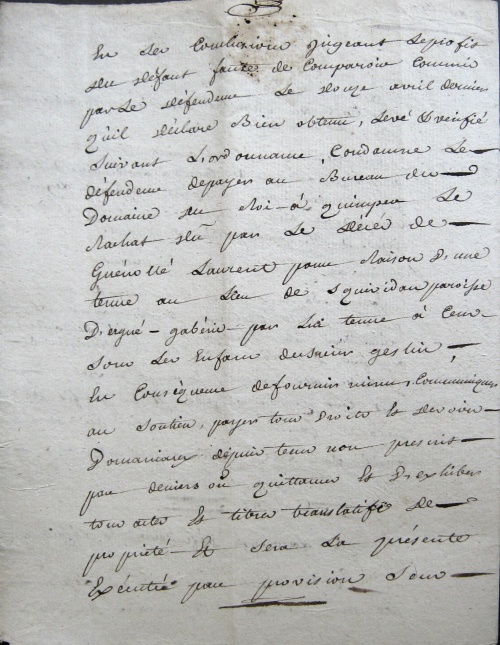 En ses Conclusions jugeant Le profit
du deffaut faute de Comparoir Commis
par Le deffendeur Le douze avril dernier
qu'il declare Bien obtenu, Levé & verifié
Suivant L'ordonnance, Condamne Le
deffendeur de payer au Bureau du
Domaine du Roi à quimper Le
Rachat dû par Le décés de
Guénollé Laurent pour Raison d'une
tenue au Lieu de Squividan paroisse
D'ergué-gabéric par Lui tenue à Cens
sous Les Enfans du Sieur gestin,
En Conséquence de fournir minu, Communiquer
au Soutien, payer tous Droits Et devoirs
Domaniaux depuis tems non prescrit
par deniers ou quittances Et D'exhiber
tous actes Et titres translatifs de
propriété Et sera La présente
Exécutée par provision Sous